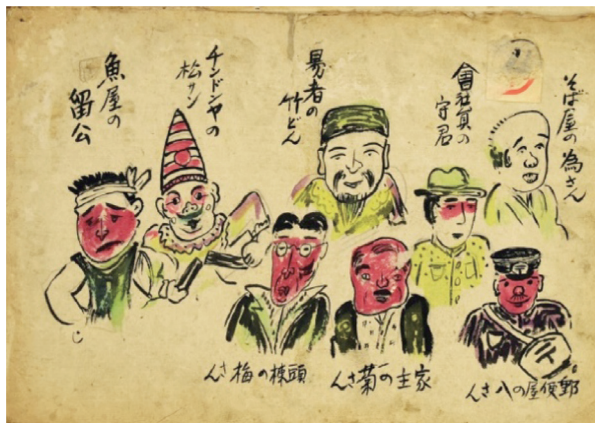 そば屋の為さん
會社員の
守君
易者の
竹どん
チンドンヤの
松サン
魚屋の
留公
郵便屋の八さん
家主の菊さん
頭棟の梅さん